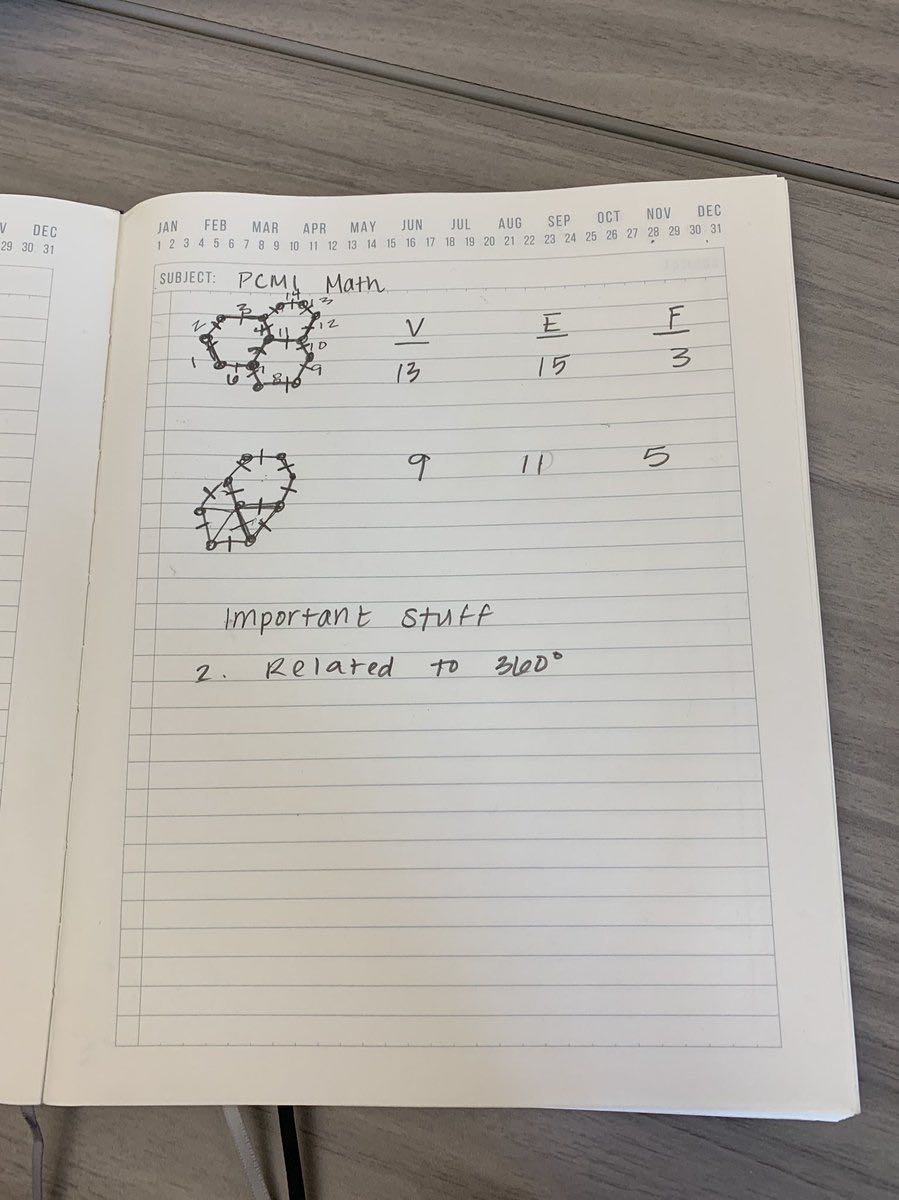 V DEC
29 30 31
JAN FEB MAR APR MAY JUN JUL AUG SEP OCT NOV DEC
1 2 3 4 5 6 7 8 9 10 11 12 13 14 15 16 17 18 19 20 21 22 23 24 25 26 27 28 29 30 31
SUBJECT: PCMI Math
14 13
2 3 4 11 12
V E F
1 6 7 8 9 10
13 15 3
9 11 5
Important stuff
2. Related to 360°